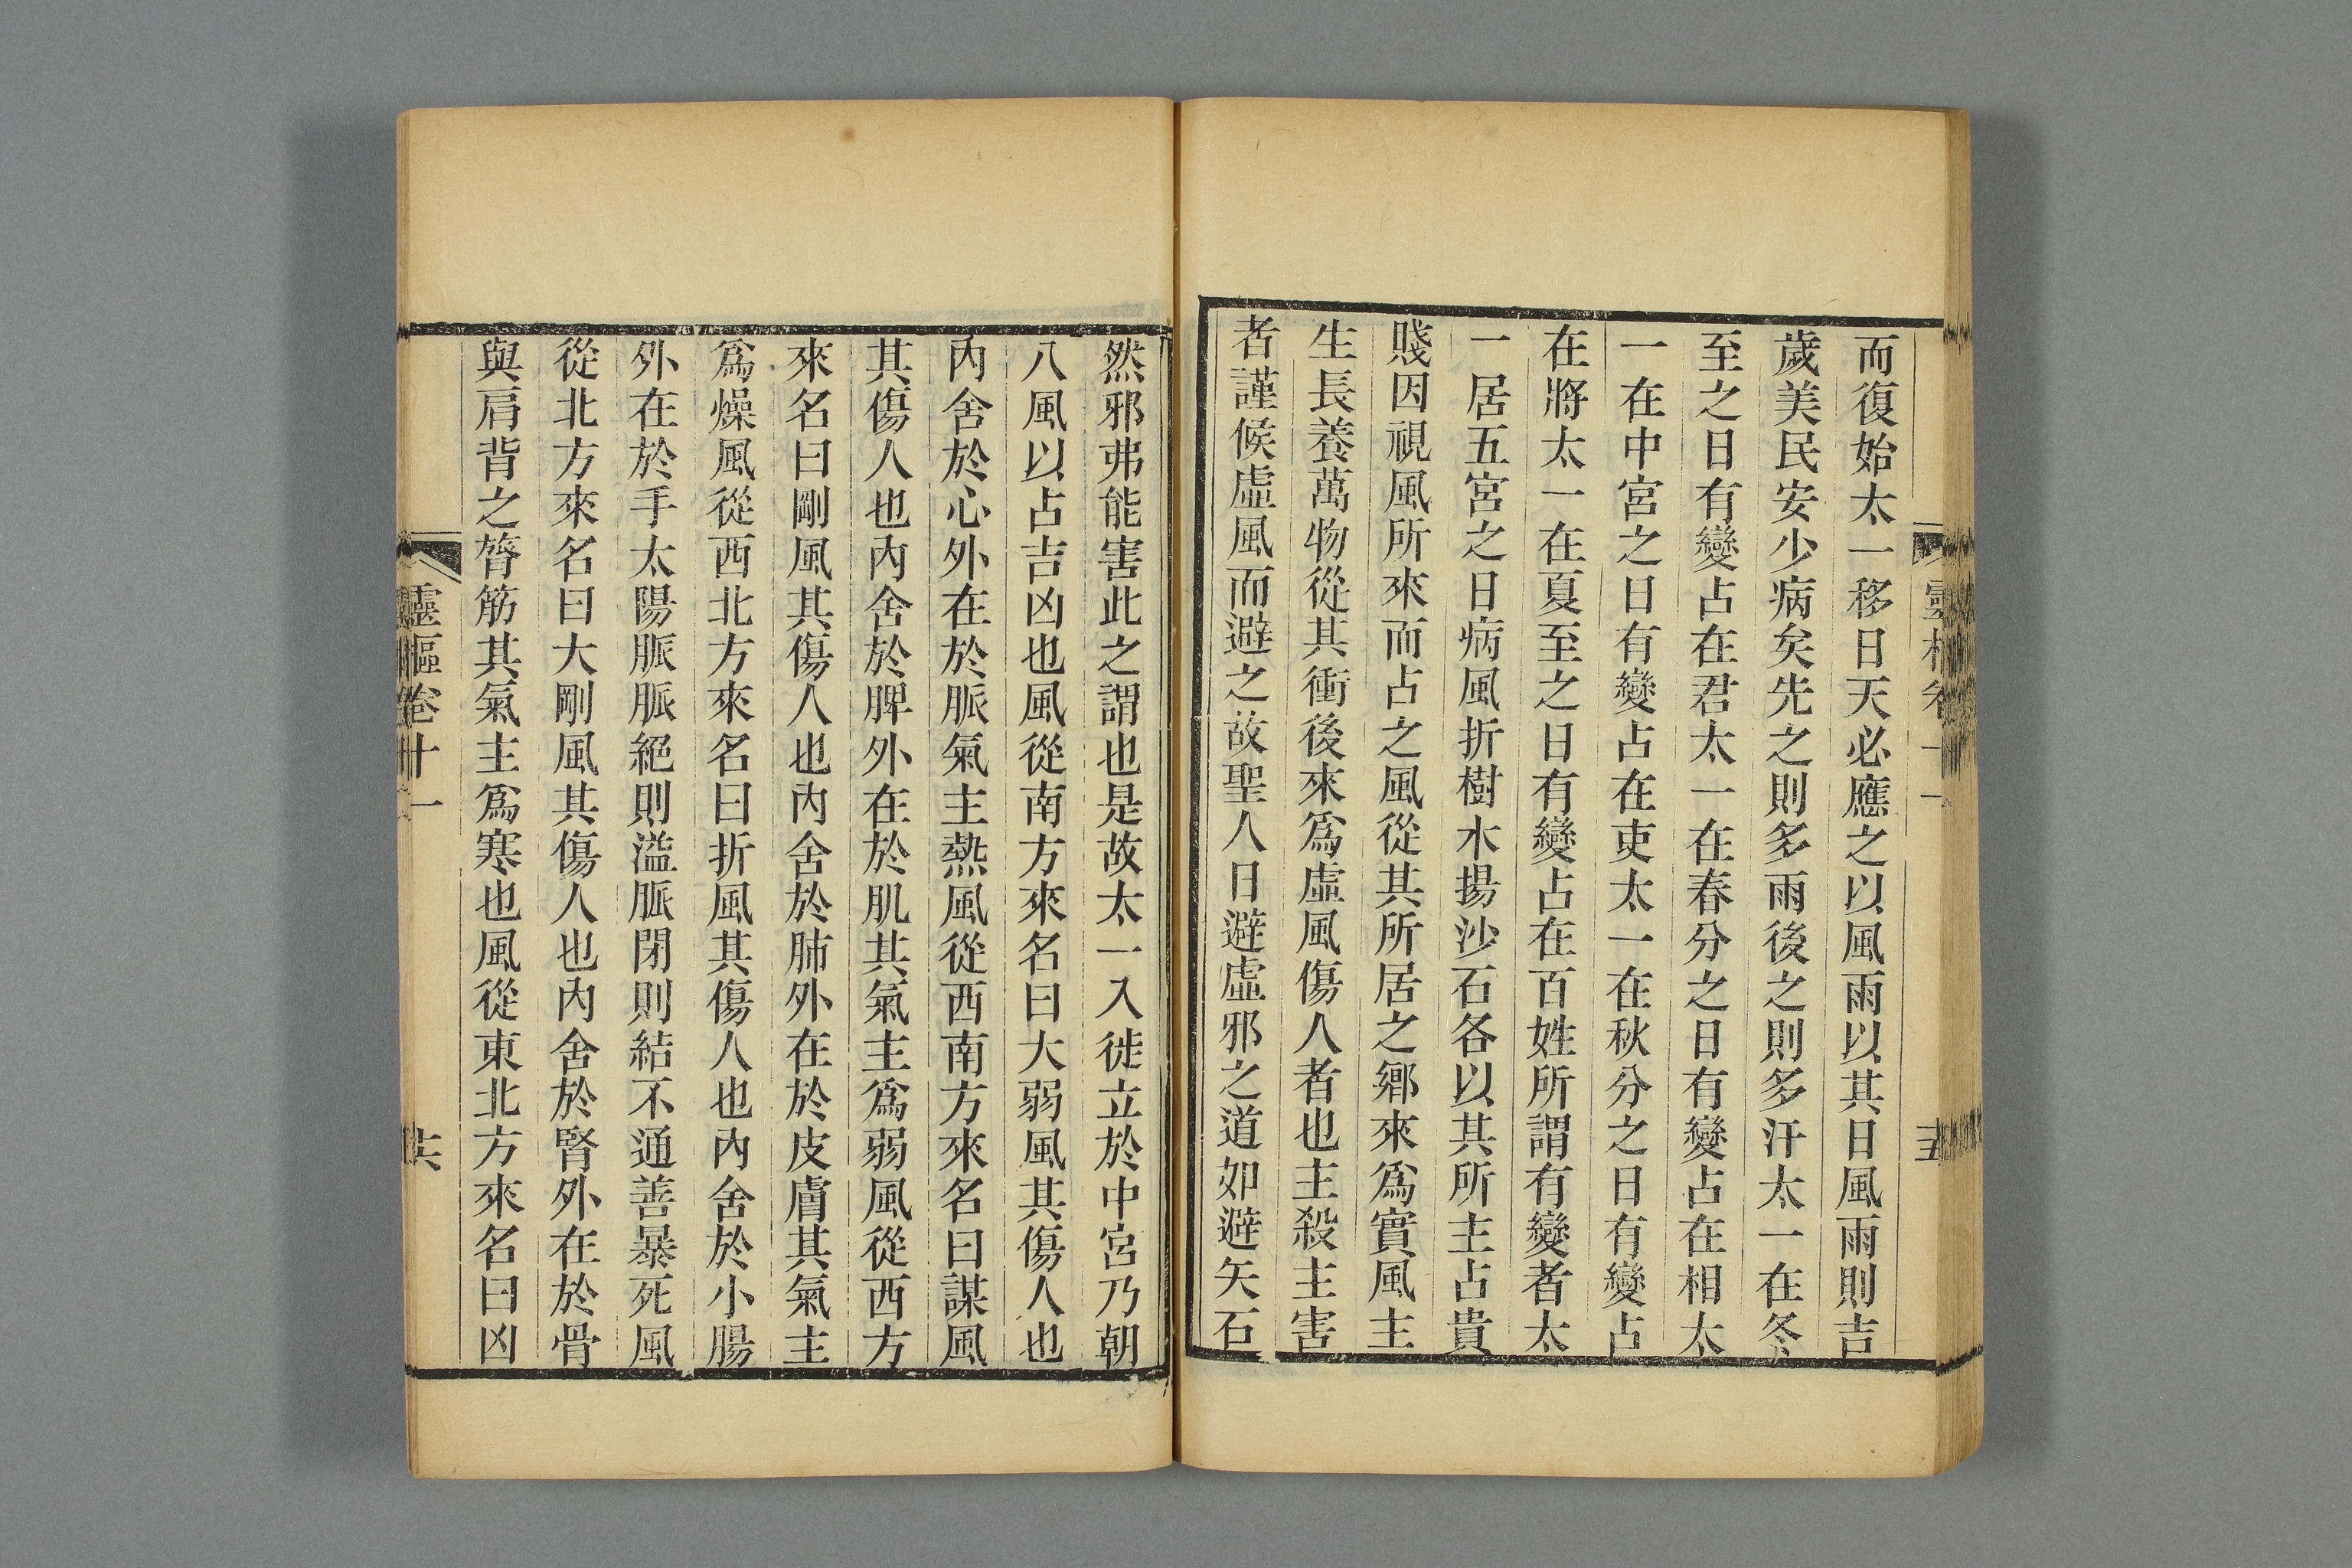 而復始太一移日天必應之以風雨以其日風雨則吉
歲美民安少病矣先之則多雨後之則多汗太一在冬
至之日有變占在君太一在春分之日有變占在相太
一在中宮之日有變占在吏太一在秋分之日有變占
在將太一在夏至之日有變占在百姓所謂有變者太
一居五宮之日病風折樹木揚沙石各以其所主占貴
賤因視風所來而占之風從其所居之鄉來爲實風主
生長養萬物從其衝後來爲虛風傷人者也主殺主害
者謹候虛風而避之故聖人日避虛邪之道如避矢石
然邪弗能害此之謂也是故太一入徙立於中宮乃朝
八風以占吉凶也風從南方來名曰大弱風其傷人也
內舍於心外在於脈氣主熱風從西南方來名曰謀風
其傷人也內舍於脾外在於肌其氣主爲弱風從西方
來名曰剛風其傷人也內舍於肺外在於皮膚其氣主
爲燥風從西北方來名曰折風其傷人也內舍於小腸
外在於手太陽脈脈絕則溢脈閉則結不通善暴死風
從北方來名曰大剛風其傷人也內舍於腎外在於骨
與肩背之膂筋其氣主爲寒也風從東北方來名曰凶
靈樞卷十一